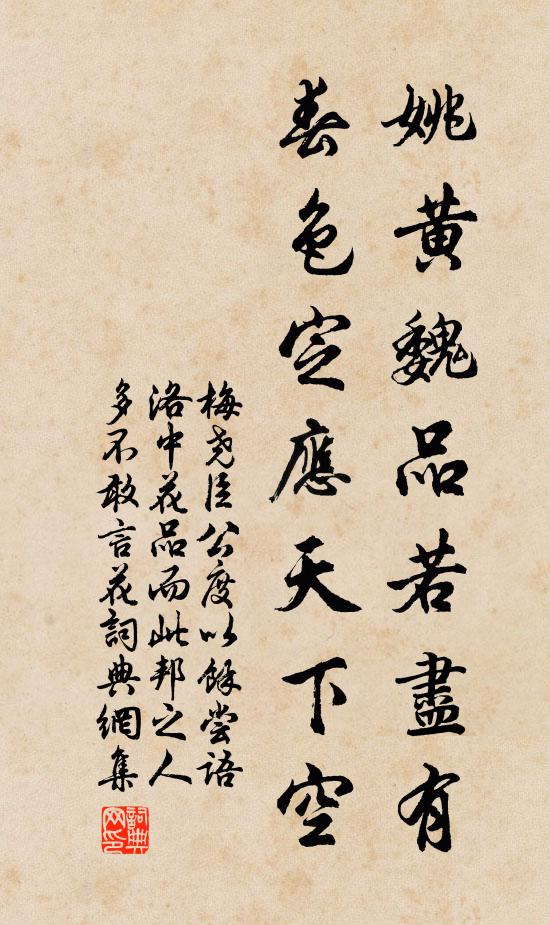 姚黄魏品若盡有
春色定應天下空
梅尧臣公度以餘尝语
洛中花品而此邦之人
多不敢言花詞典網集
詞典网印